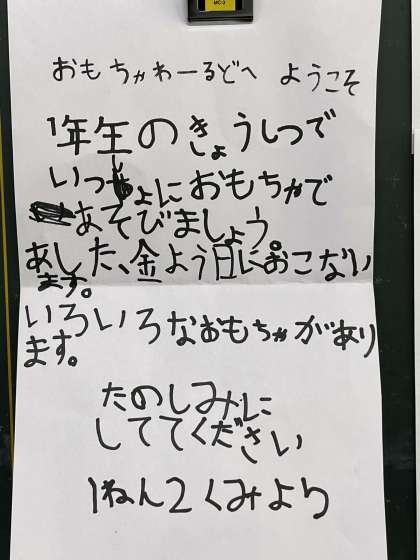 おもちゃわーるどへ ようこそ
1年生のきょうしつで
いっしょにおもちゃで
あそびましょう。
あした、金よう日におこない
ます。
いろいろなおもちゃがあり
ます。
たのしみに
しててください
1ねん2くみより